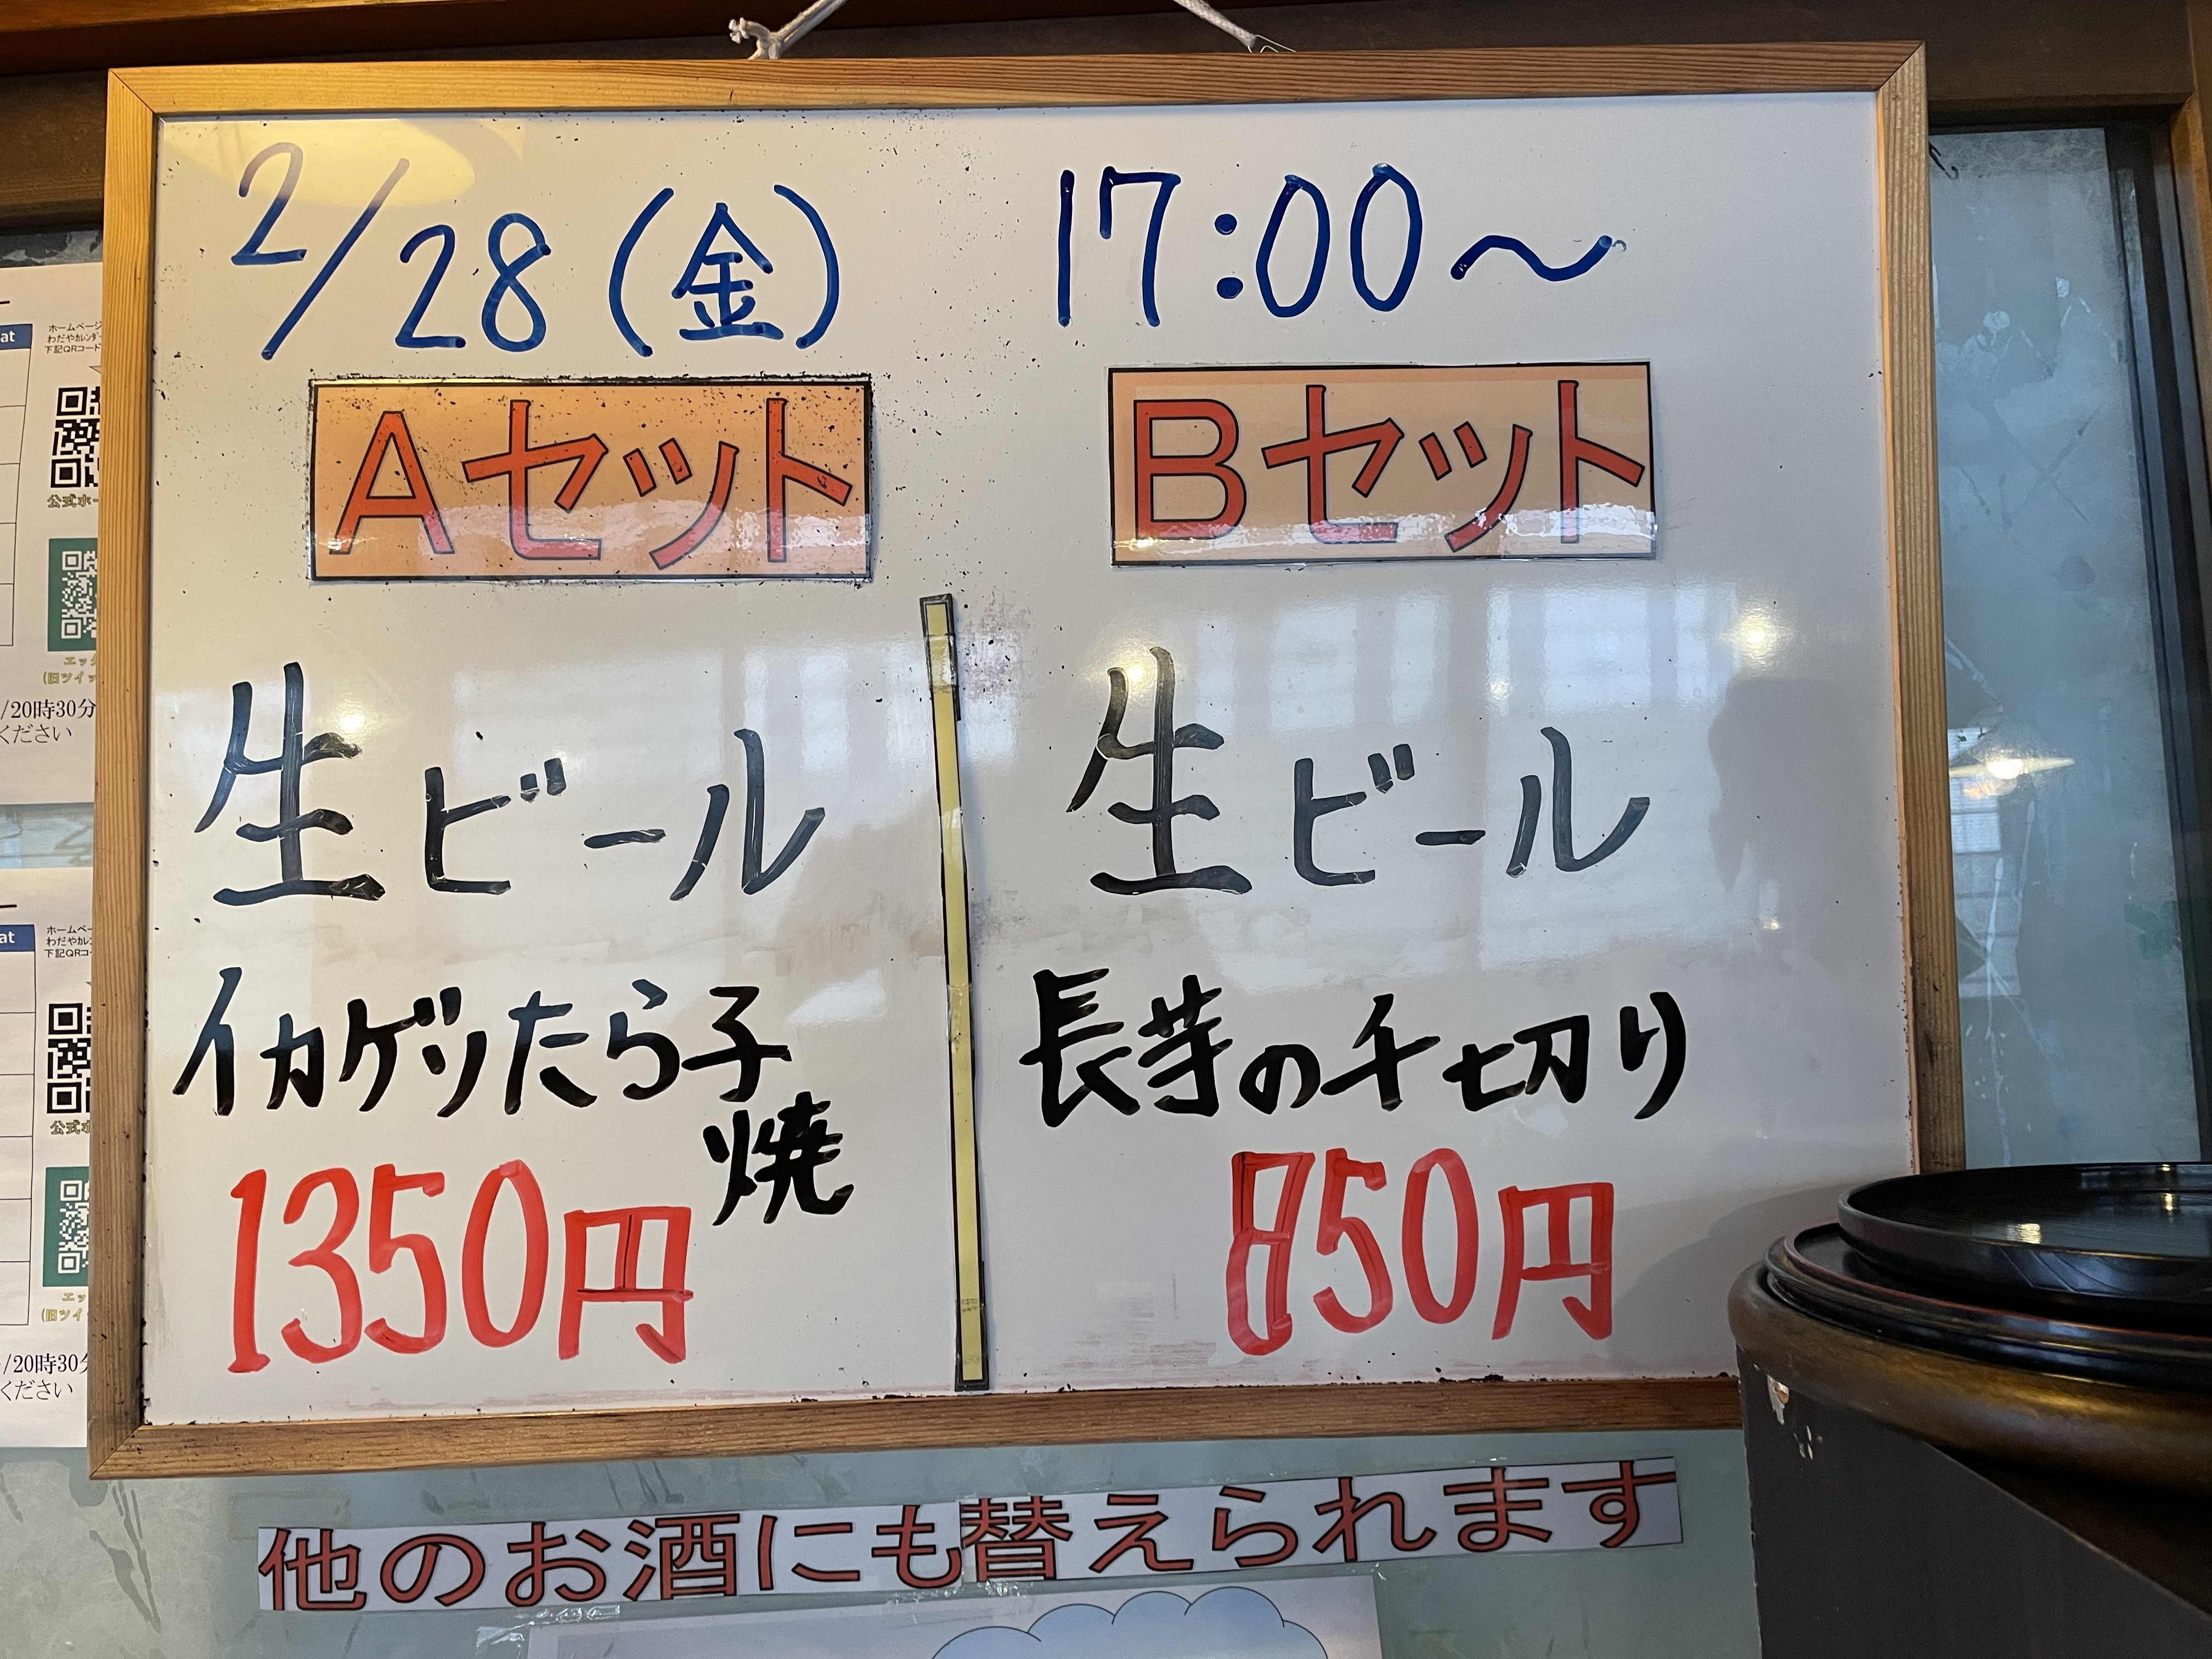 2/28(金) 17:00～
Aセット
Bセット
生ビール
イカゲソたら子
焼
1350円
生ビール
長芋の千切り
850円
他のお酒にも替えられます
at
ホームページ
わだやカレンダー
下記QRコード
公式ホー
エッ
(旧ツイッ
/20時30分
ください
at
ホームペー
わだやカレン
下記QRコー
公式ホ
エッ
(旧ツイ
/20時30分
ください